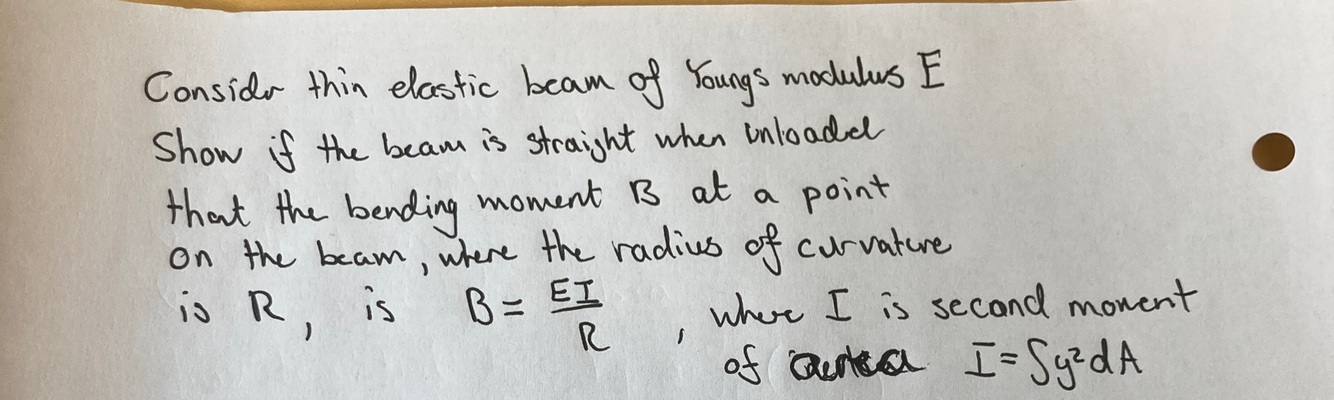 Consider thin elastic beam of Youngs modulus E
Show if the beam is straight when unloaded
that the bending moment B at a point
on the beam, where the radius of curvature
is R, is B = EI/R , where I is second moment
of area I = ∫y²dA